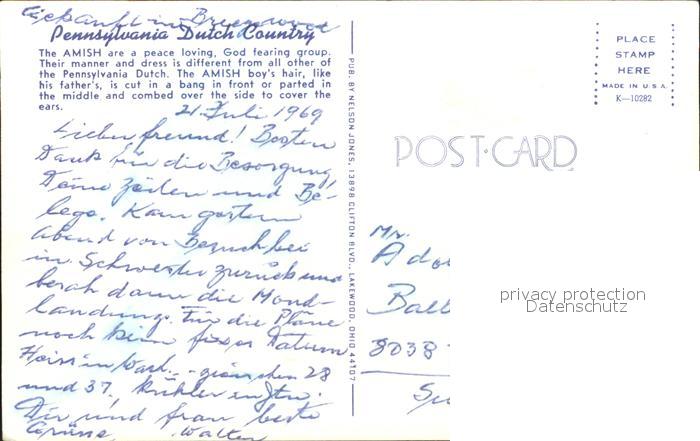 Pennsylvania Dutch Country
The AMISH are a peace loving, God fearing group.
Their manner and dress is different from all other of
the Pennsylvania Dutch. The AMISH boy's hair, like
his father's, is cut in a bang in front or parted in
the middle and combed over the side to cover the
ears.
21. Juli 1969
Lieber freund! Besten
Dank für die Besorgung,
Deine Zeilen und Be-
lege. Kam gestern
Abend von Besuch bei
m. Schwester zurück und
besah dann die Mond-
landung. Für die Pläne
noch kein fixes Datum
Heiss in Wash.
und 37.
Dir und frau beste
Grüsse, Walter
PUB. BY NELSON JONES, 13898 CLIFTON BLVD., LAKEWOOD, OHIO 44107
PLACE
STAMP
HERE
MADE IN U.S.A.
K—10282
POST CARD
Mr.
Ado
8038
privacy protection
Datenschutz